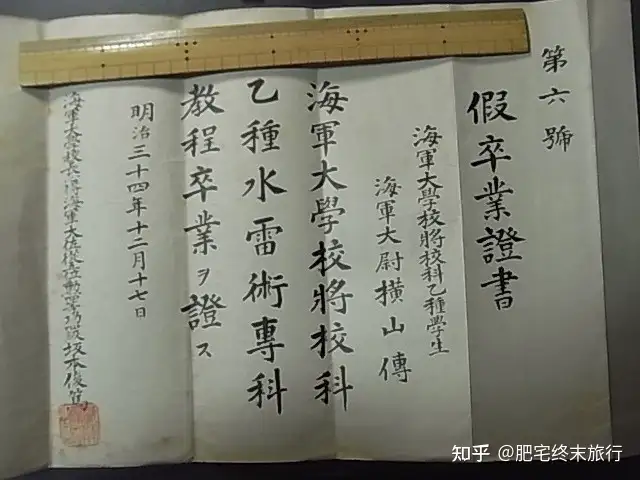 第六號
假卒業證書
海軍大學校將校科乙種學生
海軍大尉 橫山傳
海軍大學校將校科
乙種水雷術專科
教程卒業ヲ證ス
明治三十四年十二月十七日
海軍大學校長 海軍大佐從五位勳四等功四級坂本俊篤
知乎 @肥宅终末旅行